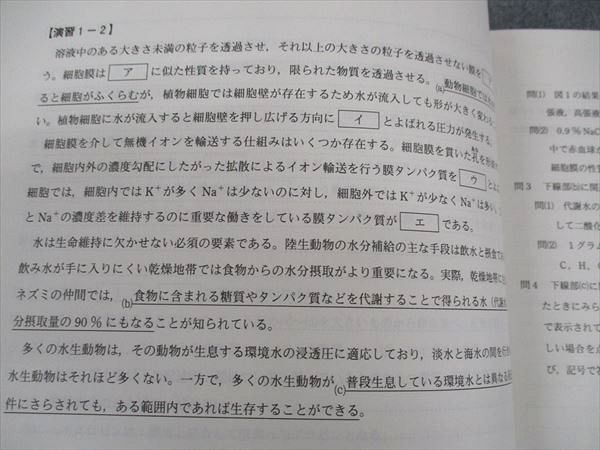 【演習1-2】
溶液中のある大きさ未満の粒子を透過させ，それ以上の大きさの粒子を透過させない膜を
う。細胞膜は ア に似た性質を持っており，限られた物質を透過させる。(a)動物細胞では水が
ると細胞がふくらむが，植物細胞では細胞壁が存在するため水が流入しても形が大きく変わる
い。植物細胞に水が流入すると細胞壁を押し広げる方向に イ とよばれる圧力が発生する。
細胞膜を介して無機イオンを輸送する仕組みはいくつか存在する。細胞膜を貫いた孔を形
で，細胞内外の濃度勾配にしたがった拡散によるイオン輸送を行う膜タンパク質を ウ と
細胞では，細胞内では K⁺ が多く Na⁺ は少ないのに対し，細胞外では K⁺ が少なく Na⁺ は多い。
と Na⁺ の濃度差を維持するのに重要な働きをしている膜タンパク質が エ である。
水は生命維持に欠かせない必須の要素である。陸生動物の水分補給の主な手段は飲水と摂食で
飲み水が手に入りにくい乾燥地帯では食物からの水分摂取がより重要になる。実際，乾燥地帯に
ネズミの仲間では，(b)食物に含まれる糖質やタンパク質などを代謝することで得られる水（代謝
分摂取量の 90 % にもなることが知られている。
多くの水生動物は，その動物が生息する環境水の浸透圧に適応しており，淡水と海水の間を
水生動物はそれほど多くない。一方で，多くの水生動物が(c)普段生息している環境水とは異なる
件にさらされても，ある範囲内であれば生存することができる。
問(1) 図1の結果
張液，高張液
問(2) 0.9 % NaC
中で赤血球が
細胞膜の性質
問3 下線部(b)に関
問(1) 代謝水の
して二酸化
問(2) 1グラム
C，H，
問4 下線部(c)に
たときにみら
で表示されて
しい場合を
び，記号で答